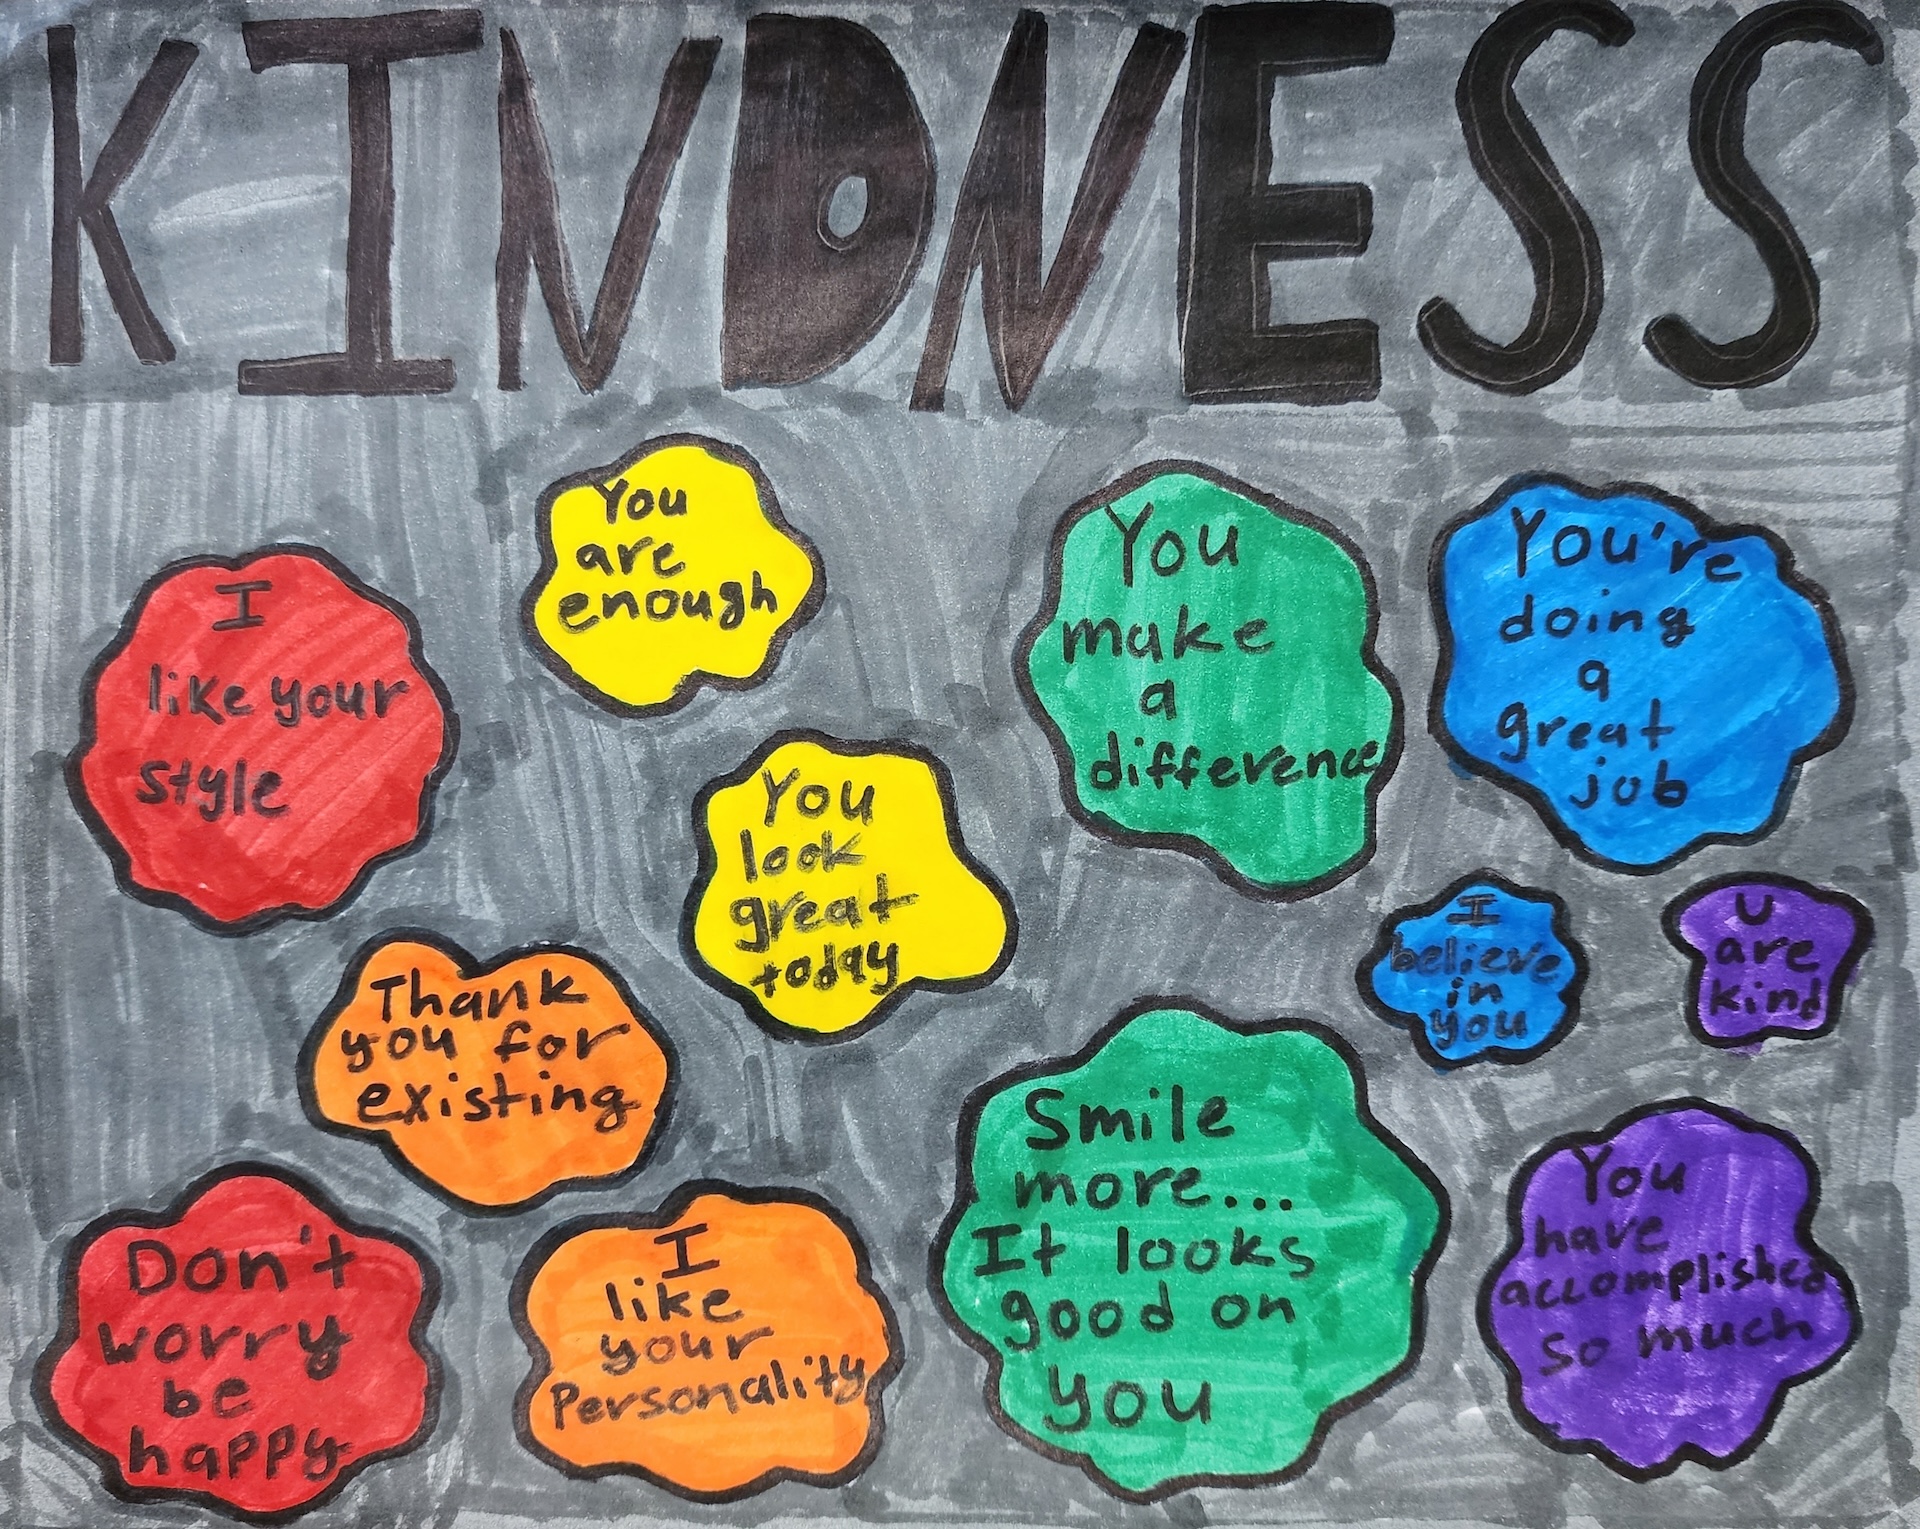 KINDNESS
I
like your
style
You
are
enough
You
make
a
difference
You're
doing
a
great
job
You
look
great
today
I
believe
in
you
U
are
kind
Thank
you for
existing
Don't
worry
be
happy
I
like
your
Personality
Smile
more...
It looks
good on
you
You
have
accomplished
so much